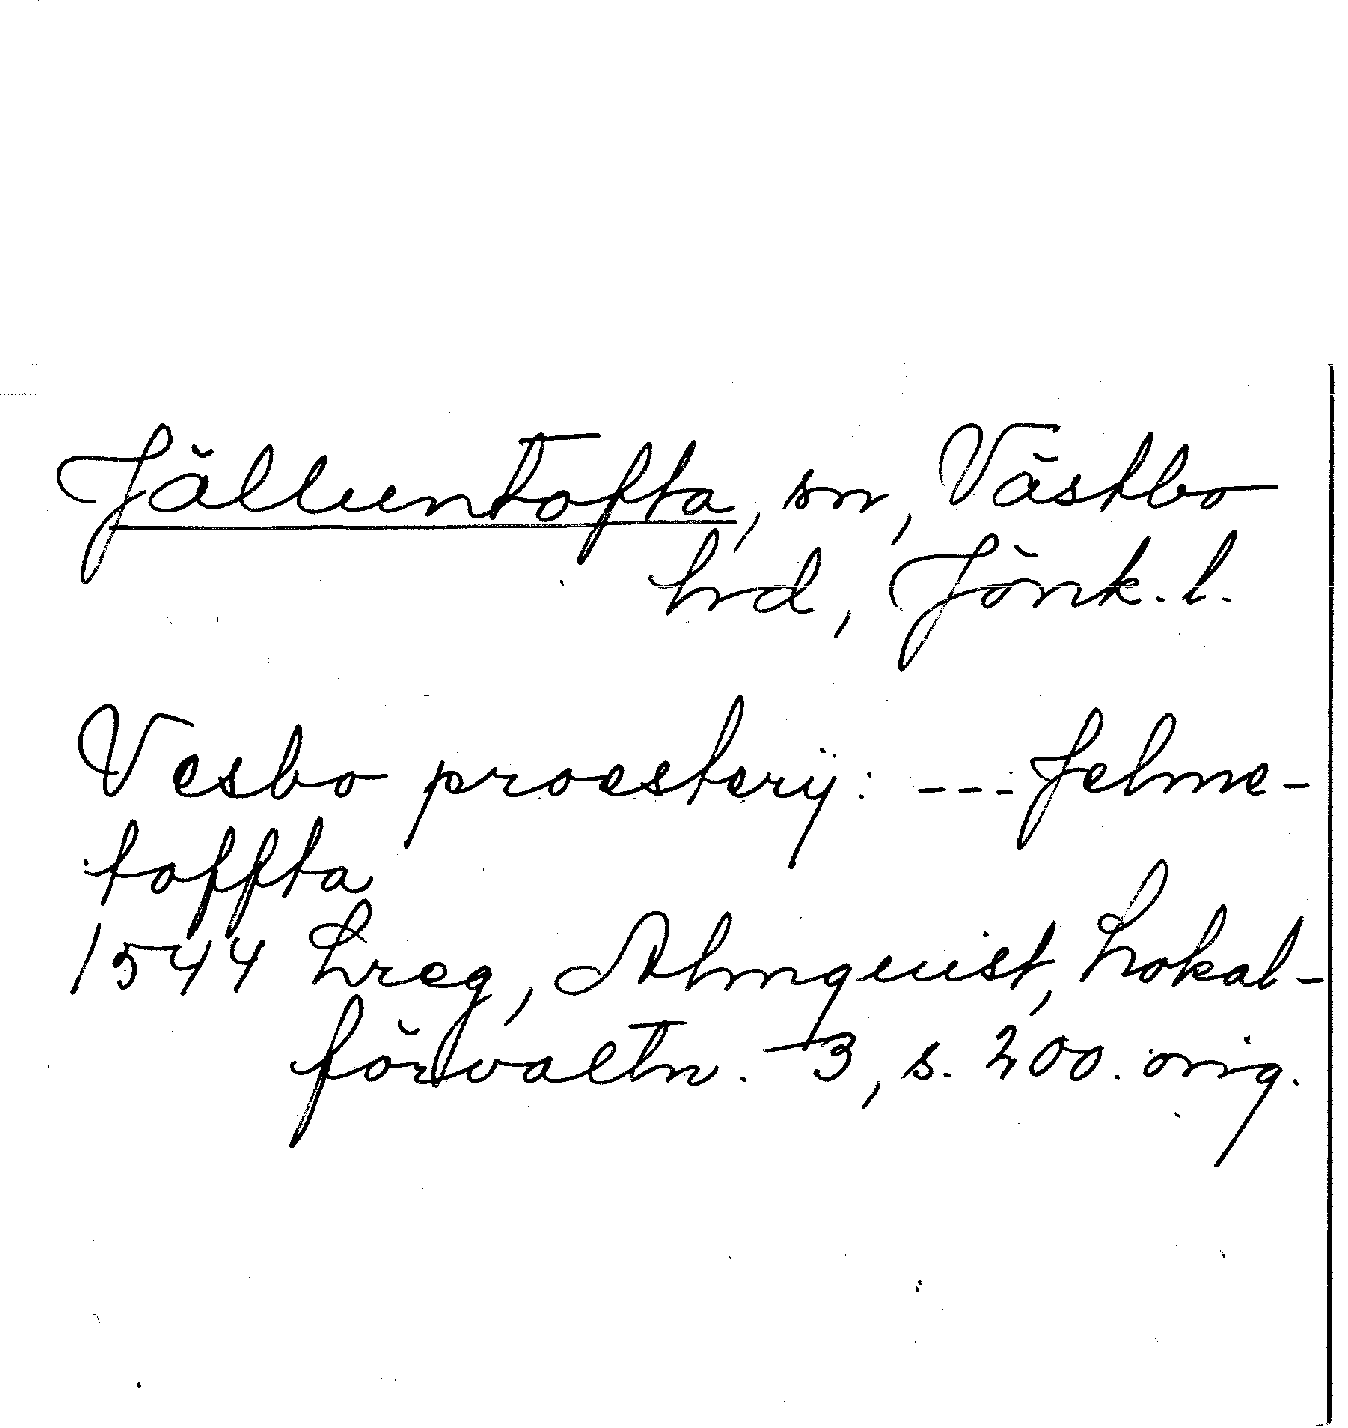 Jälluntofta, sn, Västbo
hrd, Jönk. l.
Vesbo proesterij: --- Jelme-
toffta
1544 Lreg, Almquist, Lokal-
förvaltn. 3, s. 200. orig.